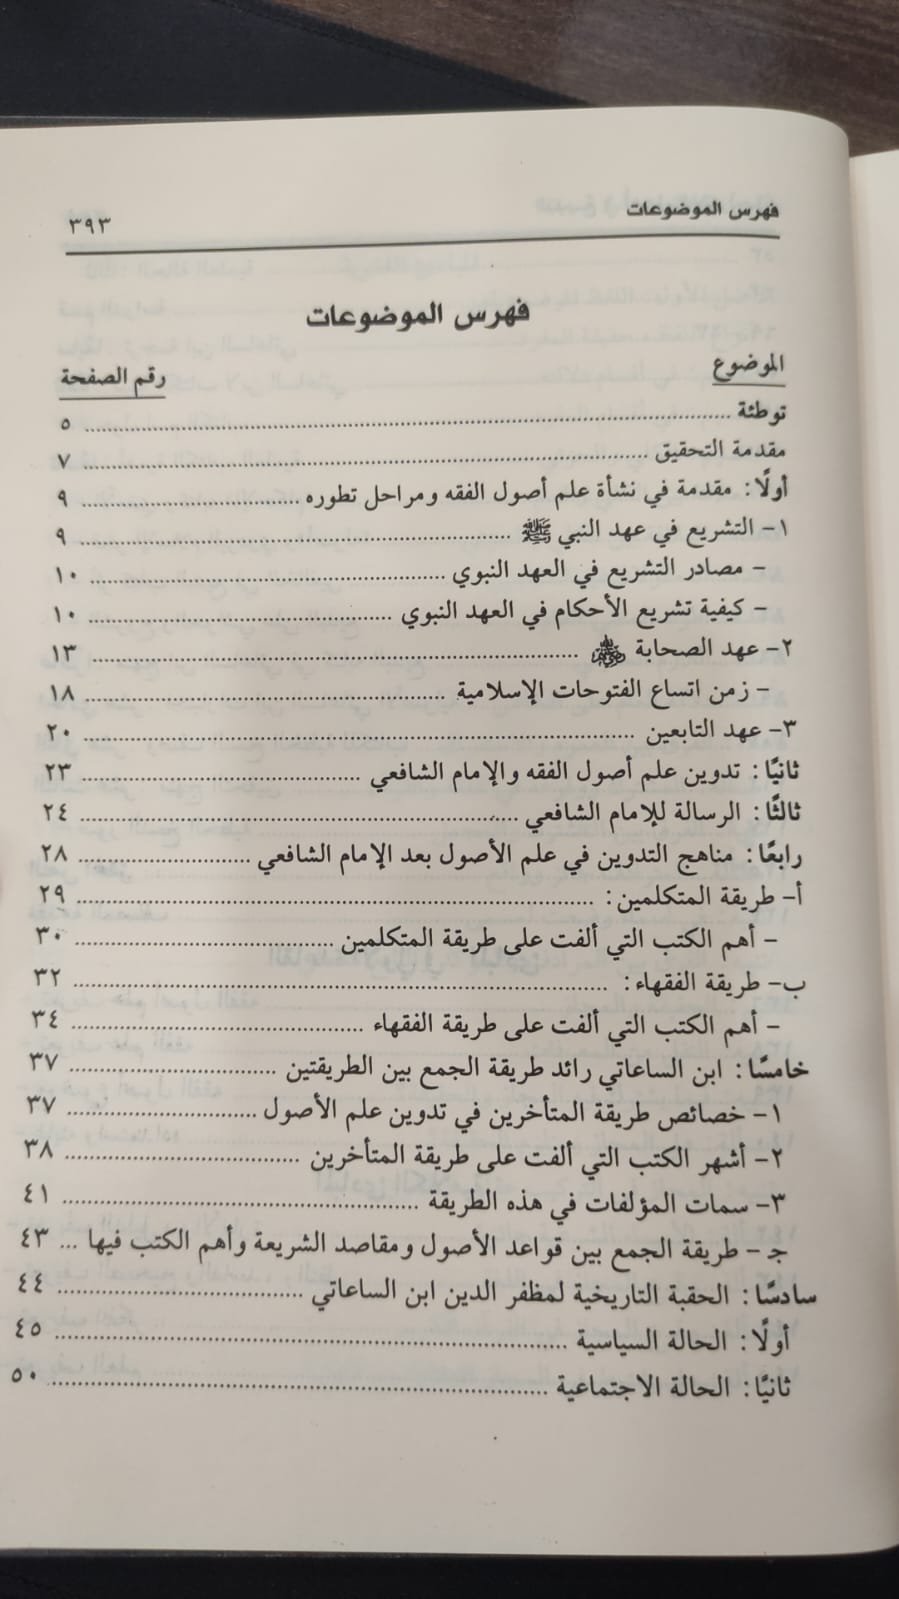 فهرس الموضوعات ٣٩٣
فهرس الموضوعات
الموضوع رقم الصفحة
توطئة ........ ٥
مقدمة التحقيق ........ ٧
أولًا: مقدمة في نشأة علم أصول الفقه ومراحل تطوره ........ ٩
١- التشريع في عهد النبي ﷺ ........ ٩
- مصادر التشريع في العهد النبوي ........ ١٠
- كيفية تشريع الأحكام في العهد النبوي ........ ١٠
٢- عهد الصحابة ........ ١٣
- زمن اتساع الفتوحات الإسلامية ........ ١٨
٣- عهد التابعين ........ ٢٠
ثانيًا: تدوين علم أصول الفقه والإمام الشافعي ........ ٢٣
ثالثًا: الرسالة للإمام الشافعي ........ ٢٤
رابعًا: مناهج التدوين في علم الأصول بعد الإمام الشافعي ........ ٢٨
أ- طريقة المتكلمين: ........ ٢٩
- أهم الكتب التي ألفت على طريقة المتكلمين ........ ٣٠
ب- طريقة الفقهاء: ........ ٣٢
- أهم الكتب التي ألفت على طريقة الفقهاء ........ ٣٤
خامسًا: ابن الساعاتي رائد طريقة الجمع بين الطريقتين ........ ٣٧
١- خصائص طريقة المتأخرين في تدوين علم الأصول ........ ٣٧
٢- أشهر الكتب التي ألفت على طريقة المتأخرين ........ ٣٨
٣- سمات المؤلفات في هذه الطريقة ........ ٤١
جـ- طريقة الجمع بين قواعد الأصول ومقاصد الشريعة وأهم الكتب فيها ... ٤٣
سادسًا: الحقبة التاريخية لمظفر الدين ابن الساعاتي ........ ٤٤
أولًا: الحالة السياسية ........ ٤٥
ثانيًا: الحالة الاجتماعية ........ ٥٠